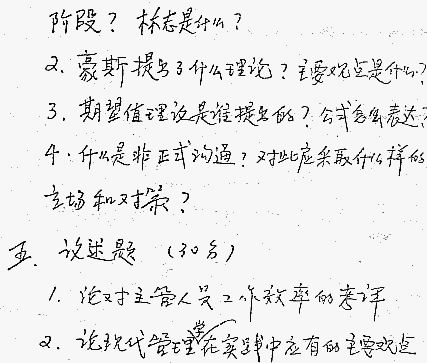 阶段？标志是什么？
2. 豪斯提出了什么理论？主要观点是什么？
3. 期望值理论是谁提出的？公式怎么表达？
4. 什么是非正式沟通？对此应采取什么样的
立场和对策？
五、论述题 (30分)
1. 论对主管人员工作效率的考评
2. 论现代管理学在实践中应有的主要观点